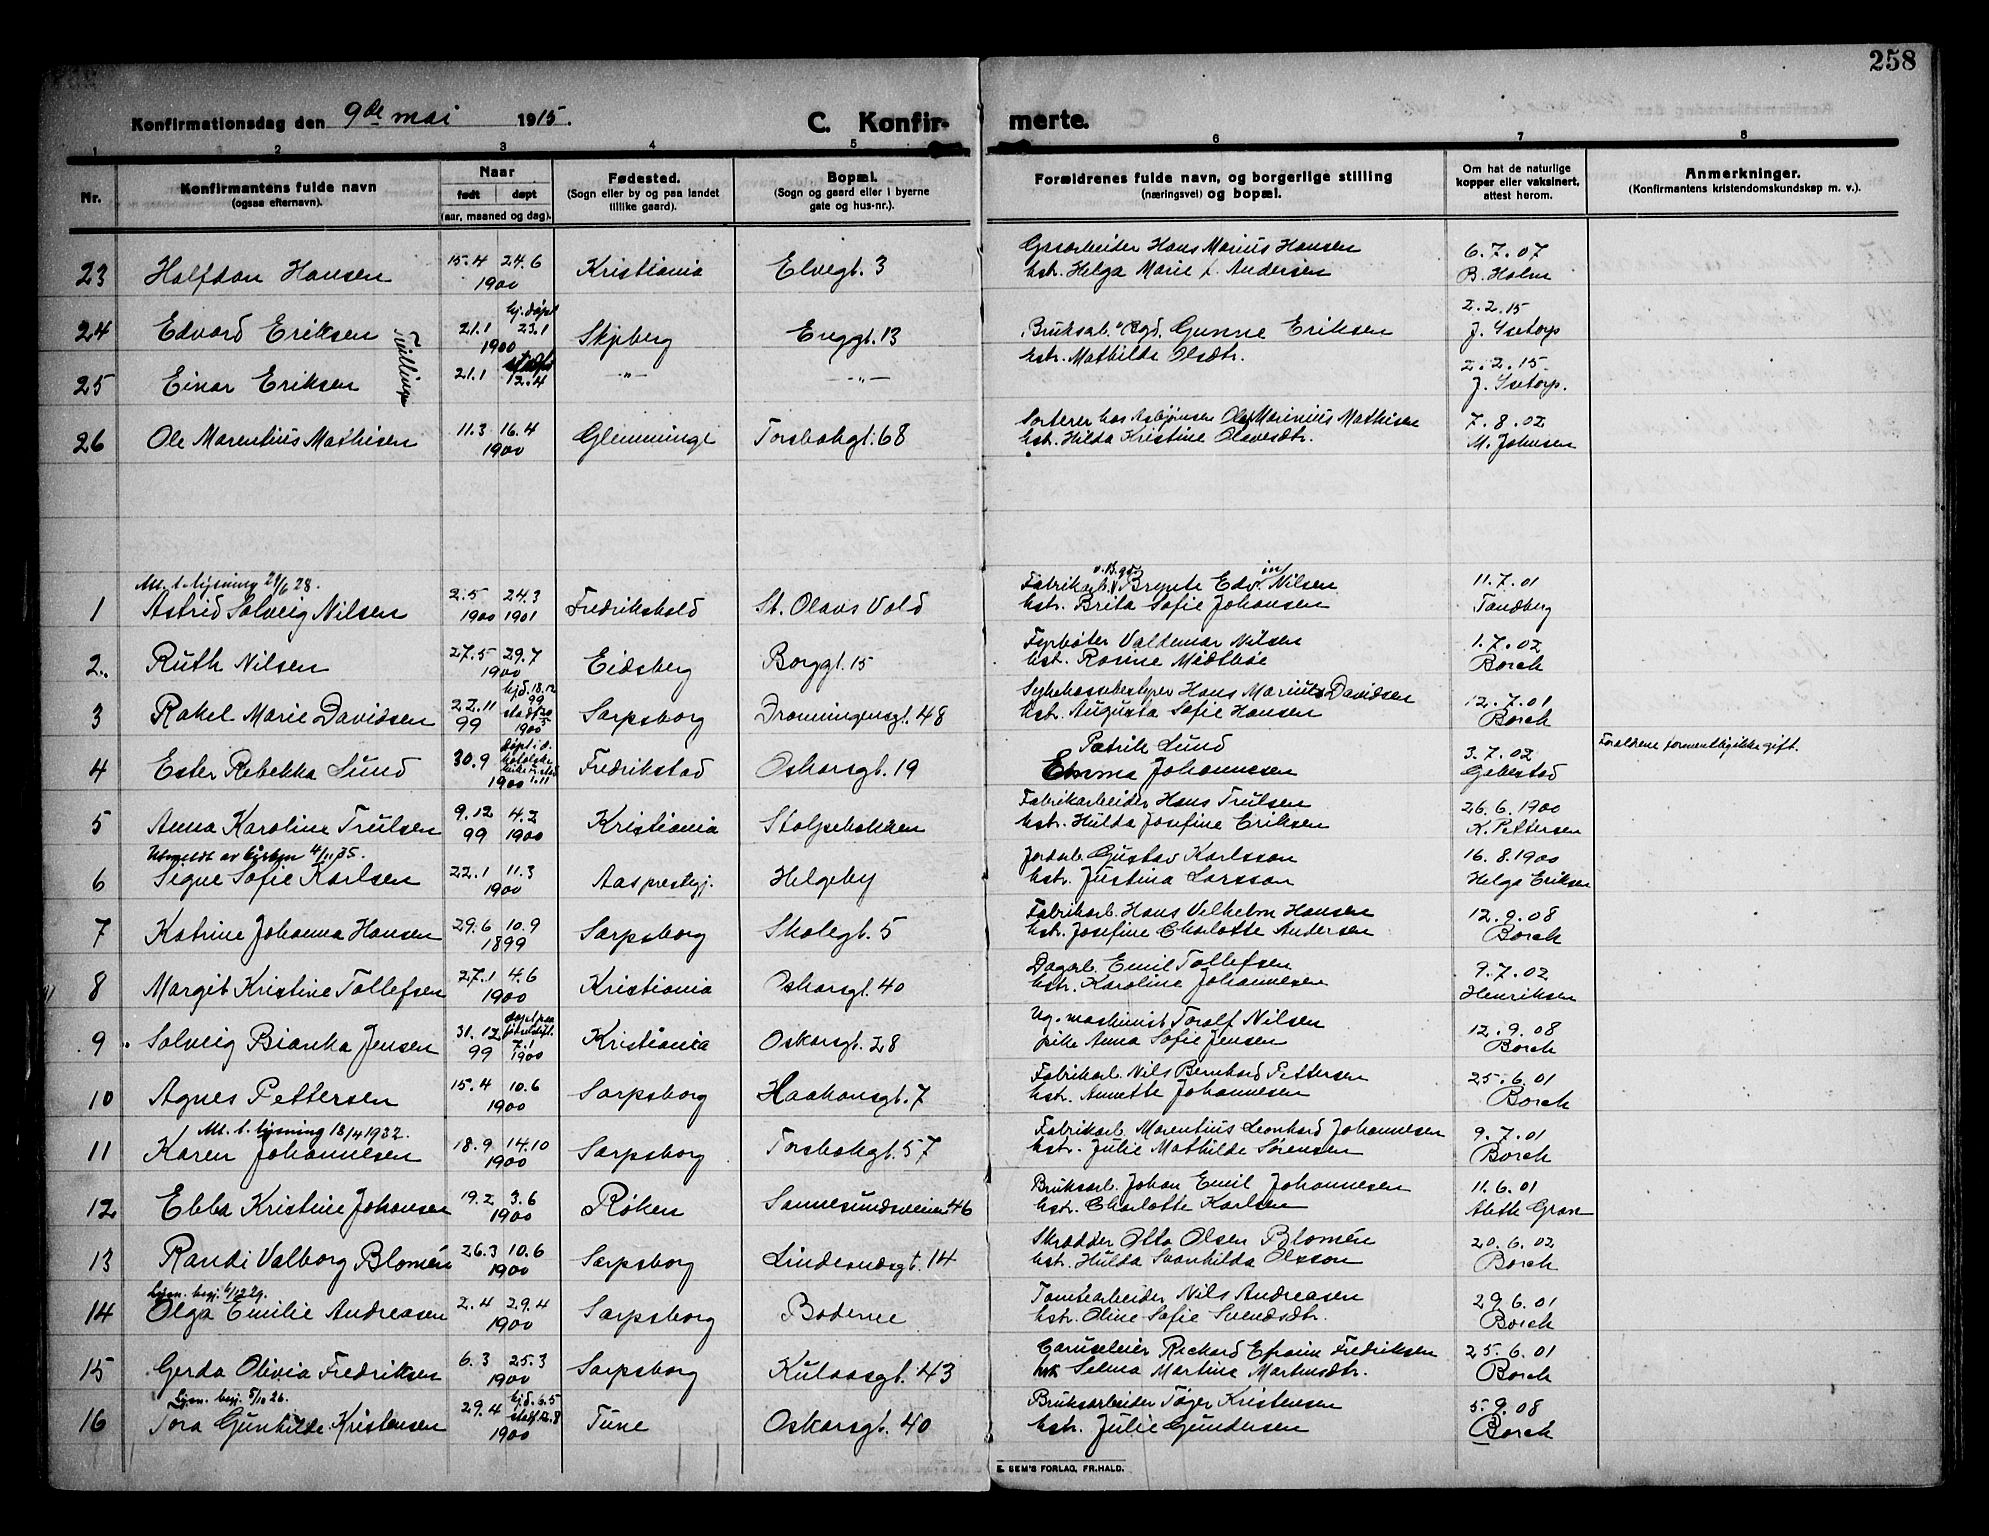 258
Konfirmationsdag den 9de mai 1915.
C. Konfir-
merte.
1 2 3 4 5 6 7 8
Nr.
Konfirmantens fulde navn
(ogsaa efternavn).
Naar
født døpt
(aar, maaned og dag).
Fødested.
(Sogn eller by og paa landet
tillike gaard).
Bopæl.
(Sogn og gaard eller i byerne
gate og hus-nr.).
Forældrenes fulde navn, og borgerlige stilling
(næringsvei) og bopæl.
Om hat de naturlige
kopper eller vaksinert,
attest herom.
Anmerkninger.
(Konfirmantens kristendomskundskap m. v.).
23 Halfdan Hansen 15.4 24.6 1900 Kristiania Elvegt. 3
Hans Marius Hansen 6.7.07
hstr. Helga Marie f. Andersen B. Holm
24 Edvard Eriksen 21.1 hj. døpt 23.1 1900 Skjeberg Enggt. 13
Tvillinger
Bruksarb. Gunne Eriksen 2.2.15
hstr. Mathilde Olsdtr. J. Ysetorp
25 Einar Eriksen 21.1 12.4 -"- -"-
2.2.15.
J. Ysetorp.
26 Ole Marentius Mathisen 11.3 16.4 1900 Glemminge Torsbekgt. 68
Sorterer hos Asbjørnsen Ole Marinius Mathisen 7.8.02
hstr. Hilda Kristine Olavesdtr. M. Johnsen
Att. t. lysning 29/6 28.
1 Astrid Solveig Nilsen 2.5 1900 24.3 1901 Fredrikshald St. Olavs Vold
Fabrikarb. v. Brynte Edvin Nilsen 11.7.01
hstr. Brita Sofie Johansen Tandberg
2. Ruth Nilsen 27.5 29.7 1900 Eidsberg Borggt. 15
Fyrbøter Valdemar Nilsen 1.7.02
hstr. Rosine Midtbøe Borch
3 Rakel Marie Davidsen 22.11 99 hjd. 18.12 99 stadf. 20/5 1900 Sarpsborg Dronningensgt. 48
Sykekassebestyrer Hans Marius Davidsen 12.7.01
hstr. Augusta Sofie Hansen Borch
4 Ester Rebekka Lund 30.9 døpt i d. katolske kirke 1.11 1900 Fredrikstad Oskarsgt. 19
Patrik Lund 3.7.02
Emma Johannesen Gebestad
Forældrene formentlig ikke gift.
5 Anna Karoline Trulsen 9.12 99 4.2 1900 Kristiania Stolpebakken
Fabrikarbeider Hans Trulsen 26.6.1900
hstr. Hulda Josefine Eriksen K. Pettersen
Utmeldt av kirken 4/11 35.
6 Signe Sofie Karlsen 22.1 11.3 1900 Aas prestegj. Helgeby
Jordarb. Gustav Karlsson 16.8.1900
hstr. Justina Larsson Helga Eriksen
7 Katrine Johanna Hansen 29.6 10.9 1899 Sarpsborg Skolegt. 5
Fabrikarb. Hans Vilhelm Hansen 12.9.08
hstr. Josefine Charlotte Andersen Borch
8 Margit Kristine Tollefsen 27.1 4.6 1900 Kristiania Oskarsgt. 40
Dagarb. Emil Tollefsen 9.7.02
hstr. Karoline Johannesen Henriksen
9 Solveig Bianka Jensen 31.12 99 døpt paa fødselsst. 7.1 1900 Kristiania Oskarsgt. 28
Ug. maskinist Toralf Nilsen 12.9.08
pike Anna Sofie Jensen Borch
10 Agnes Pettersen 15.4 10.6 1900 Sarpsborg Haakonsgt. 7
Fabrikarb. Nils Bernhard Pettersen 25.6.01
hstr. Annette Johannesen Borch
Att. t. lysning 18/4 1932.
11 Karen Johannesen 18.9 14.10 1900 Sarpsborg Torsbekgt. 57
Fabrikarb. Marentius Leonhard Johannesen 9.7.01
hstr. Julie Mathilde Sørensen Borch
12 Ebba Kristine Johansen 19.2 3.6 1900 Røken Sannesundsveien 46
Bruksarb. Johan Emil Johannesen 11.6.01
hstr. Charlotte Karlsen Aleth Gran
13 Randi Valborg Blomén 26.3 10.6 1900 Sarpsborg Lindesnæsgt. 14
Skrædder Otto Olsen Blomén 20.6.02
hstr. Hulda Svanhilda Olsson Borch
Lysn. begj. 6/12 29.
14 Olga Emilie Andreasen 2.4 29.4 1900 Sarpsborg Boderne
Tomtearbeider Nils Andreasen 29.6.01
hstr. Oline Sofie Svendsdtr. Borch
15 Gerda Olivia Fredriksen 6.3 25.3 1900 Sarpsborg Kulaasgt. 43
Caruseleier Richard Efraim Fredriksen 25.6.01
Selma Martine Martinsdtr. Borch
Lysn. begj. 5/10 26.
16 Tora Gunhilde Kristensen 29.4 hjd. 6.5 stadf. 12.8 1900 Tune Oskarsgt. 40
Bruksarbeider Tøger Kristensen 5.9.08
hstr. Julie Gundersen Borch
E. SEM'S FORLAG, FR.HALD.